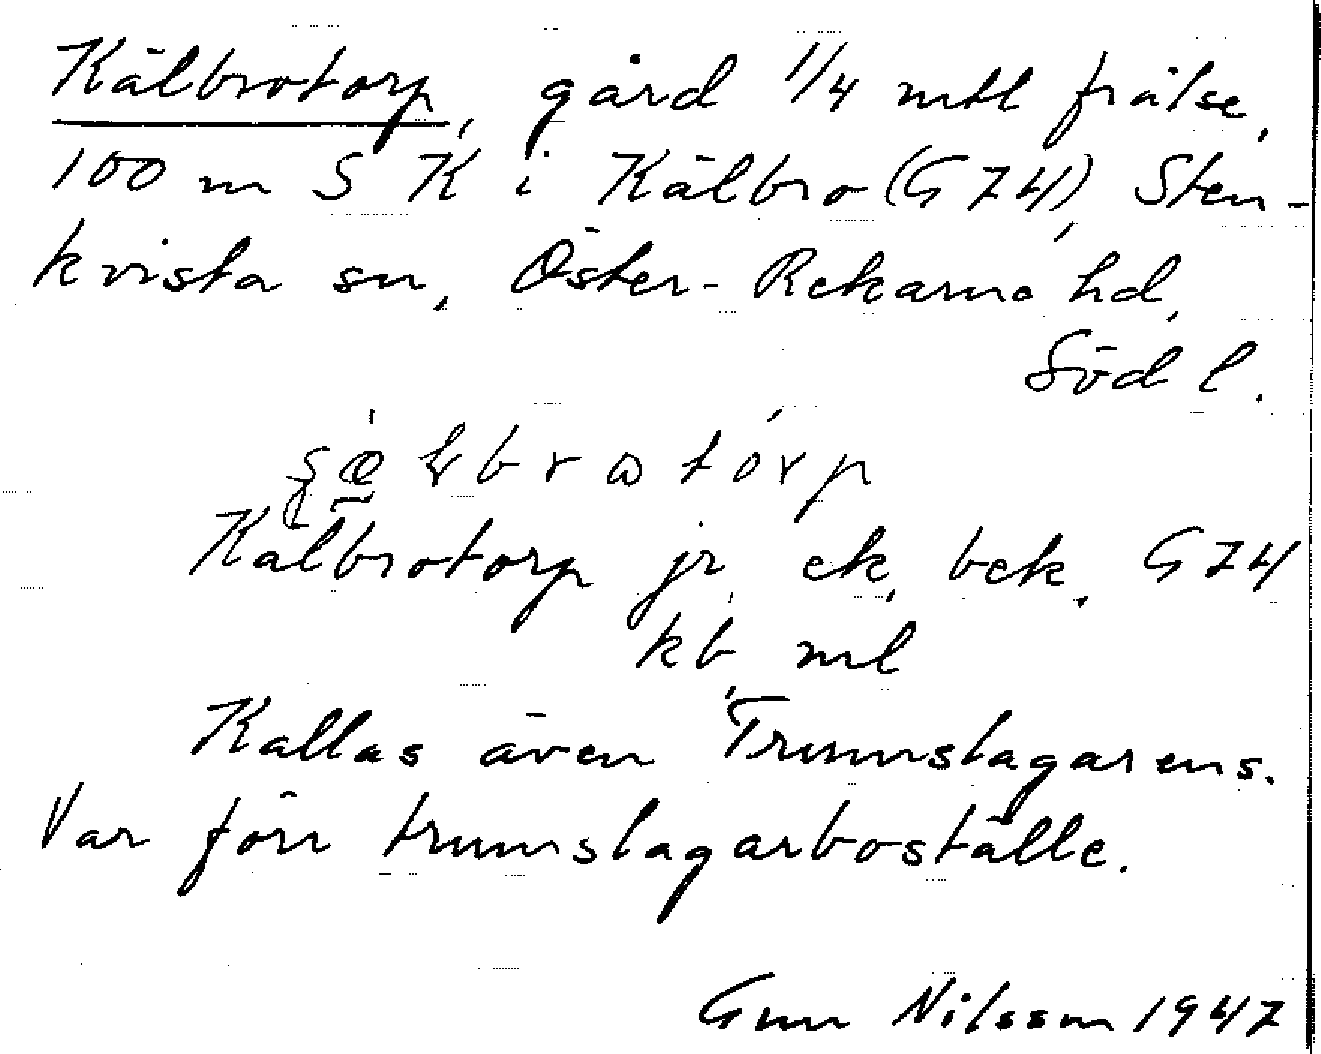 Kälbrotorp, gård 1/4 mtl frälse,
100 m S K i Kälbro (G 74), Sten-
kvista sn, Öster-Rekarne hd,
Söd l.
Kälbrotorp jr, ek, bek. G 74
kb, ml
Kallas även Trumslagarens.
Var förr trumslagarboställe.
Gun Nilsson 1947